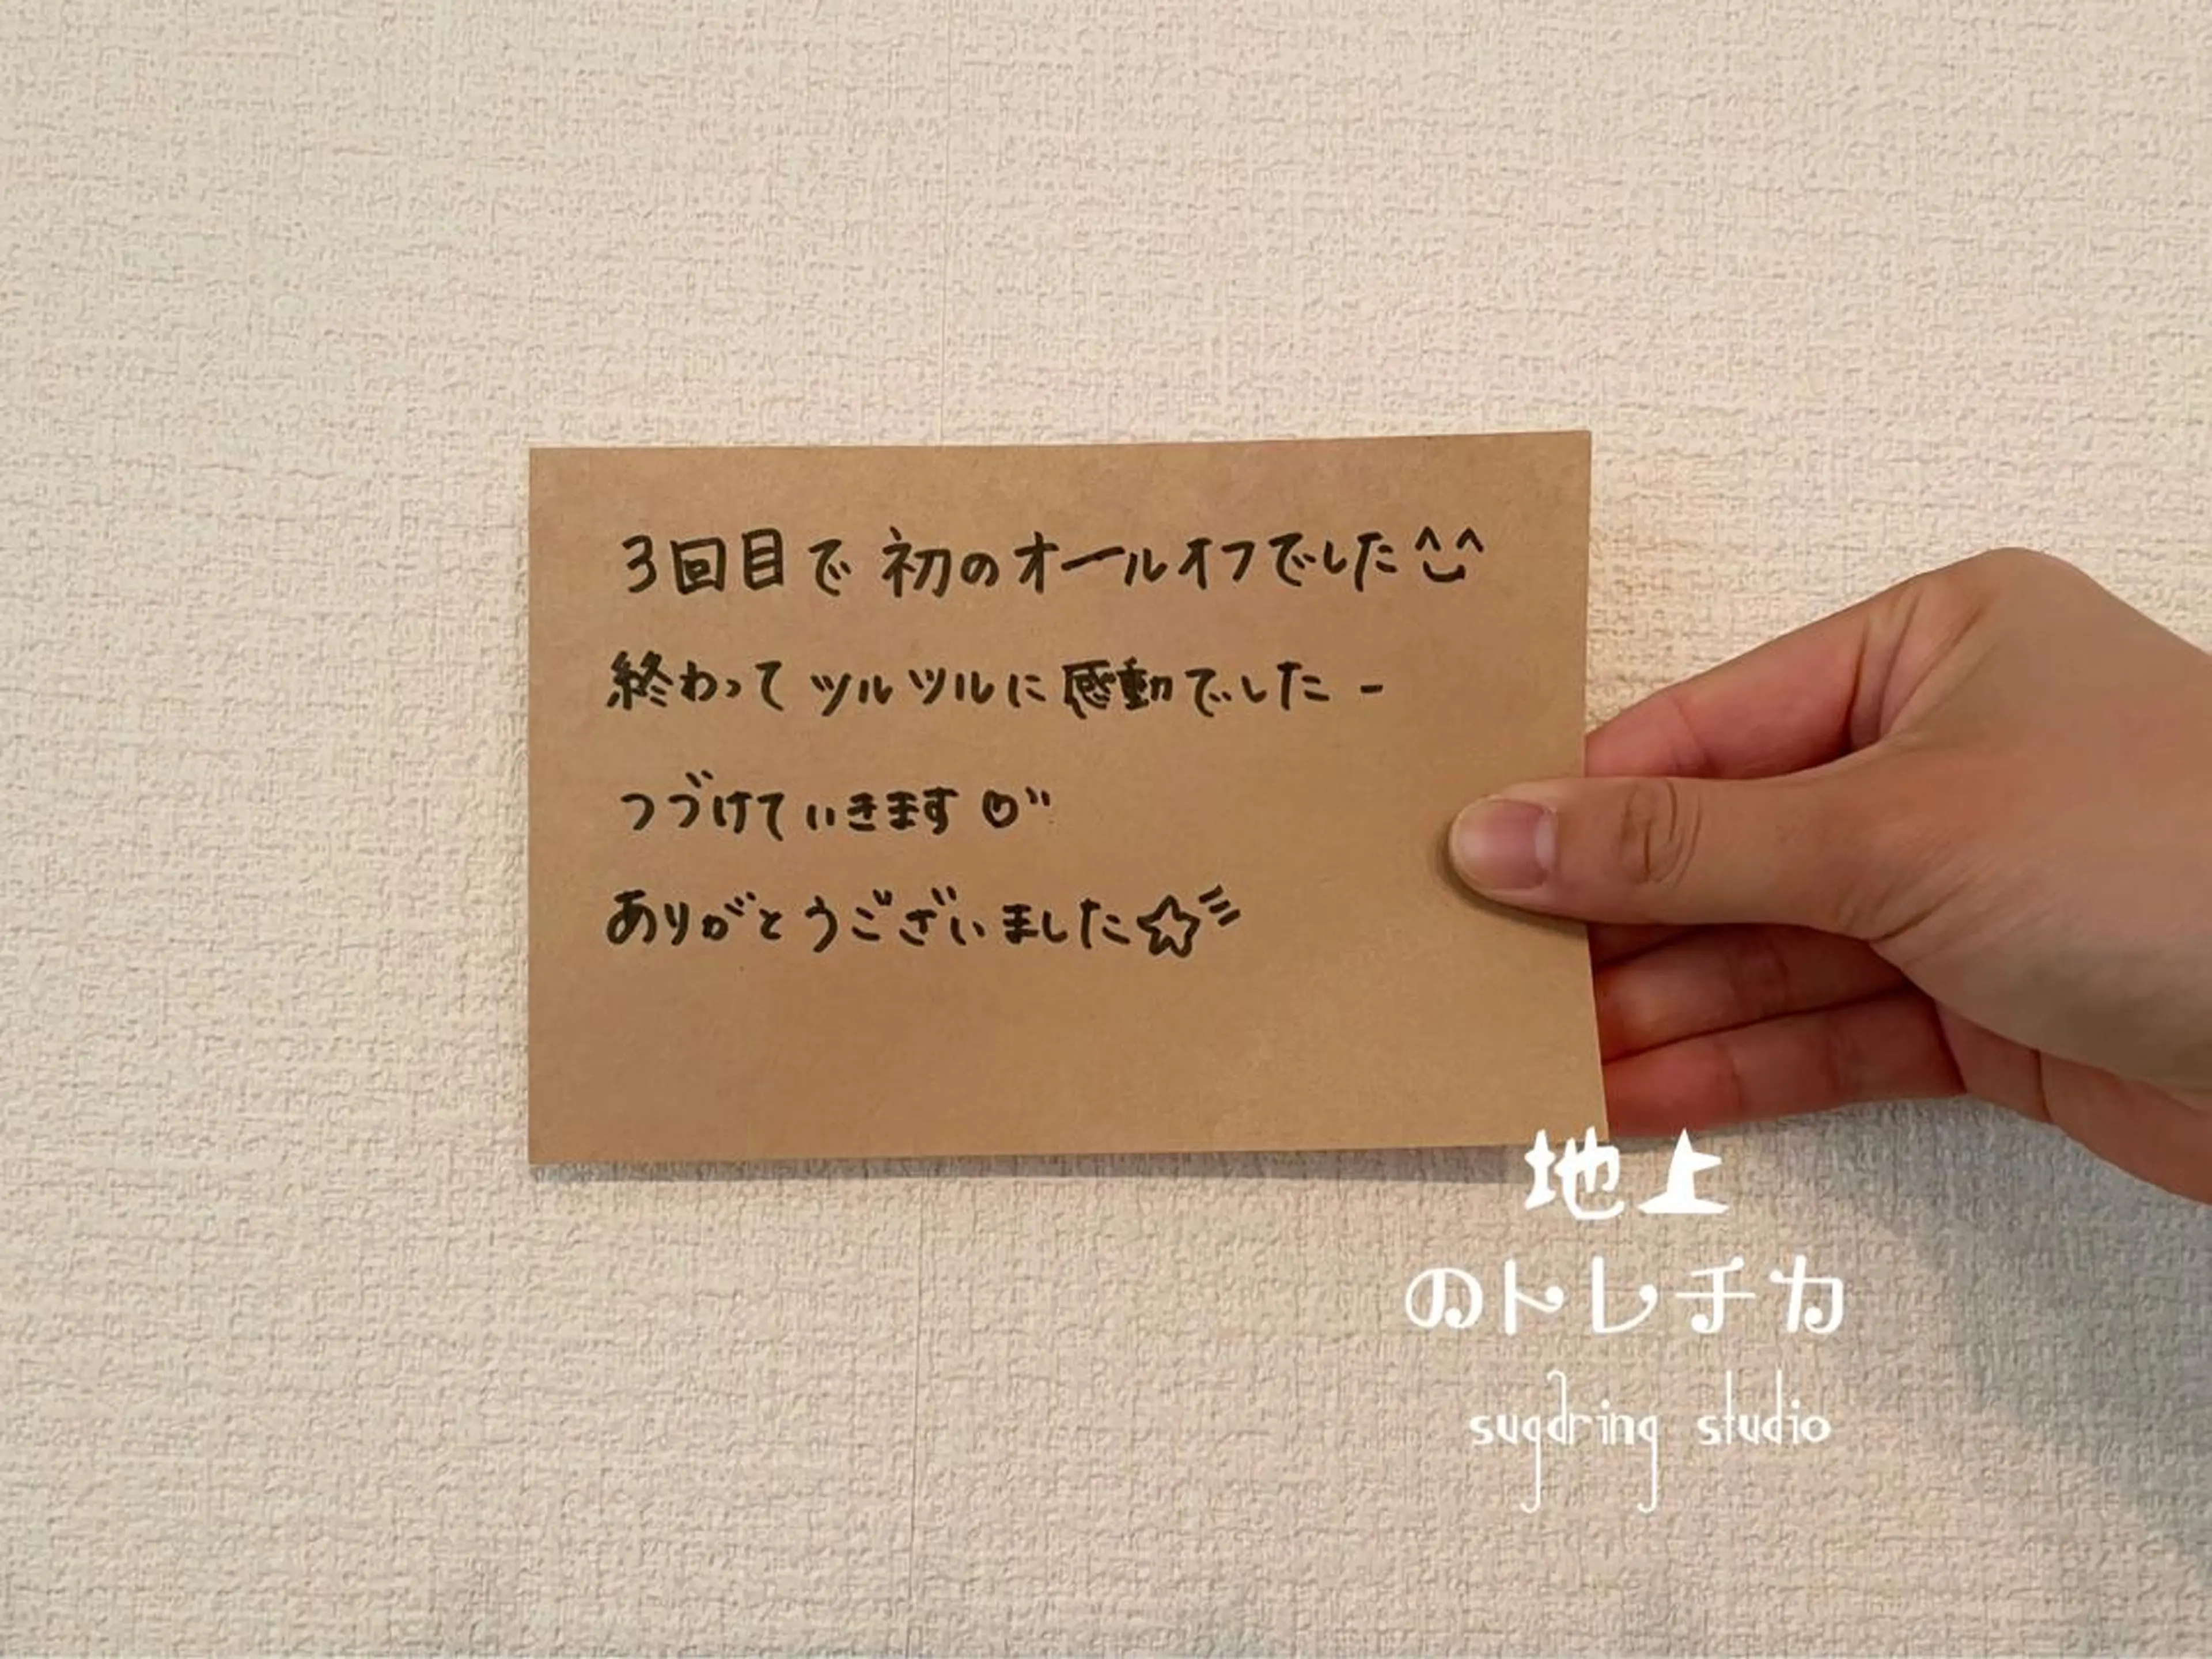 3回目で 初のオールオフでした^^
終わって ツルツルに感動でした -
つづけていきます♡"
ありがとうございました☆彡
地上
のトレチカ
sugaring studio